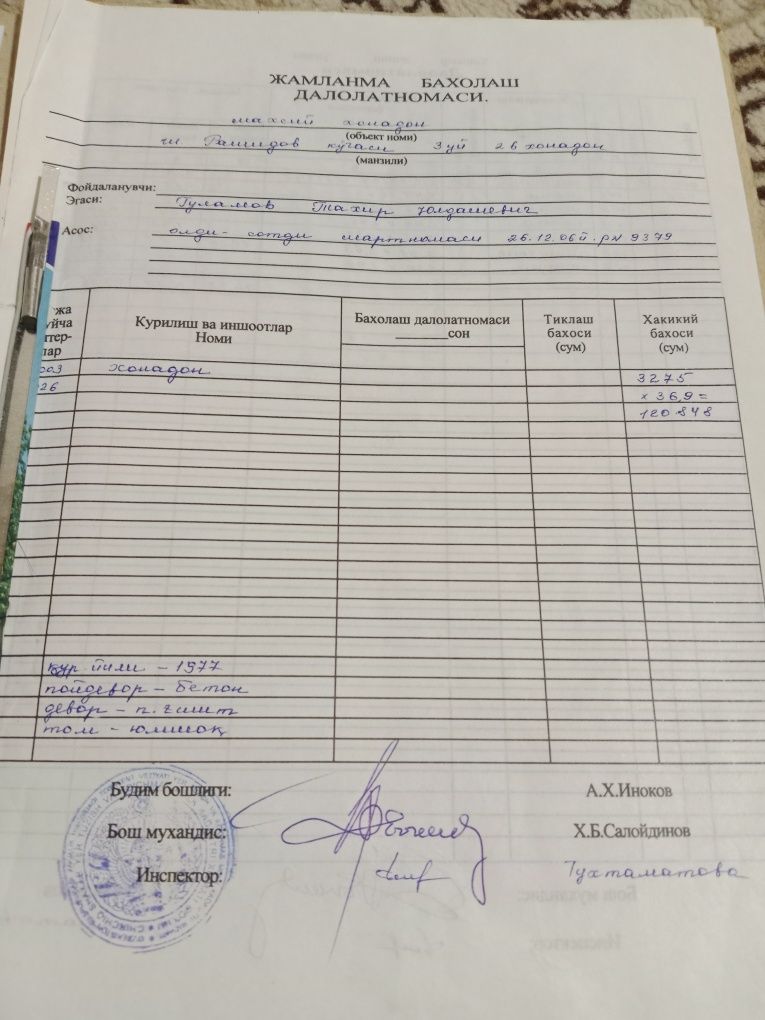 ЖАМЛАНМА БАХОЛАШ
ДАЛОЛАТНОМАСИ.
махсий хонадон
(объект номи)
ш Рашидов кўчаси 3 уй 26 хонадон
(манзили)
Фойдаланувчи:
Эгаси: Гуламов Тахир Юлдашевич
Асос: олди-сотди шартномаси 26.12.06й. р№ 9379
Курилиш ва иншоотлар
Номи
Бахолаш далолатномаси
________сон
Тиклаш
бахоси
(сум)
Хакикий
бахоси
(сум)
хонадон 3275
26 х 36,9 =
120 848
кур йили – 1977
пойдевор – бетон
девор – п. ғишт
том – юмшоқ
Будим бошлиги: А.Х.Иноков
Бош мухандис: Х.Б.Салойдинов
Инспектор: Тухтаматова